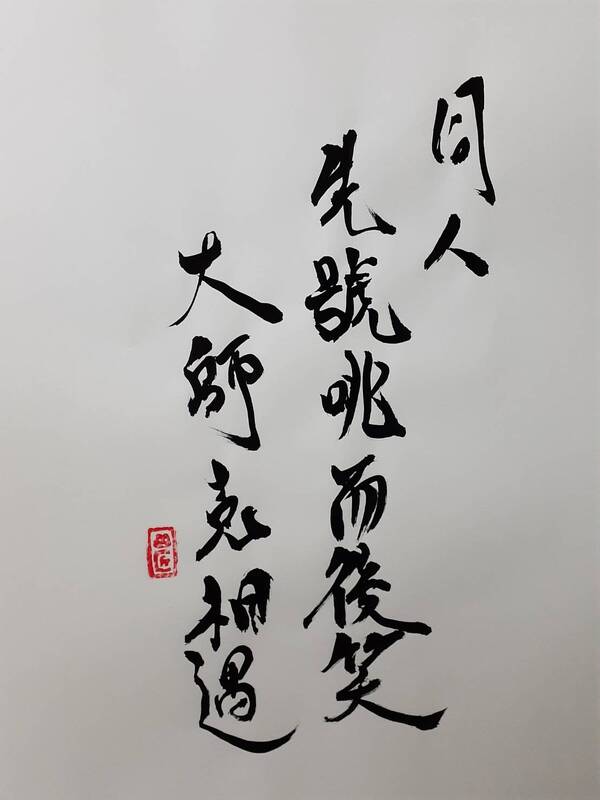 同人
先號咷而後笑
大師克相遇